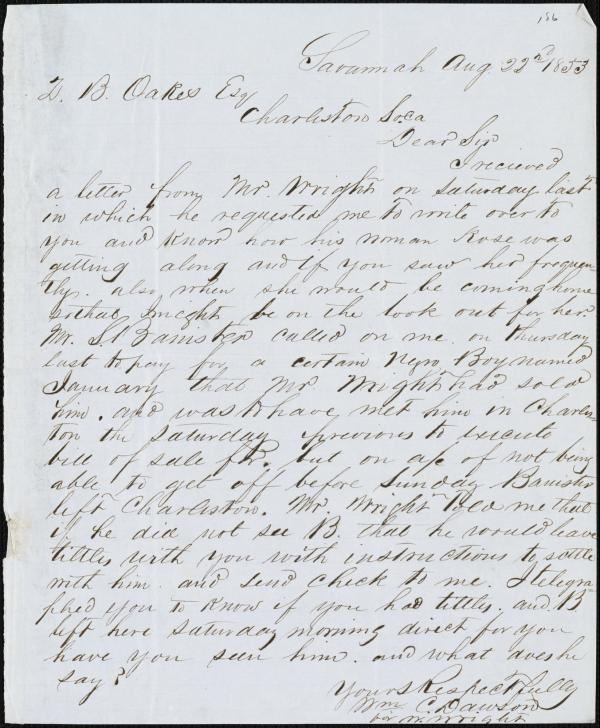 186
Savannah Aug. 22nd 1853
Z. B. Oakes Esq
Charleston So.Ca
Dear Sir
I recieved
a letter from Mr. Wright on Saturday last
in which he requested me to write over to
you and know how his woman Rose was
getting along and if you saw her frequen-
tly. also when she would be coming home
so that I might be on the look out for her.
Mr. S. Banister called on me on Thursday
last to pay for a certain Negro Boy named
January that Mr. Wright had sold
him. and was to have met him in Charles-
ton the Saturday previous to execute
bill of sale &c. but on a/c of not being
able to get off before Sunday Banister
left Charleston. Mr. Wright told me that
if he did not see B. that he would leave
tittles with you with instructions to settle
with him and send check to me. I telegra-
phed you to know if you had tittles. and B
left here Saturday morning direct for you
have you seen him. and what does he
say?
Yours Respectfully
Wm C. Dawson
for W. Wright